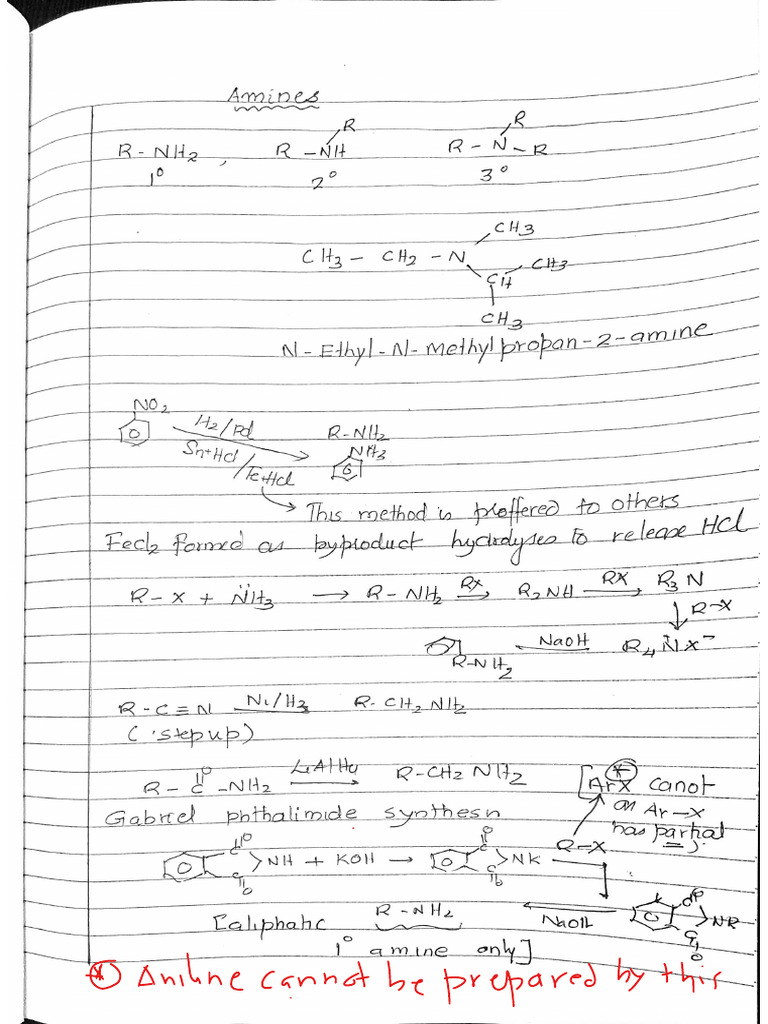 Amines
R - NH2 , R - NH R R - N - R R
1° 2° 3°
CH3
CH3 - CH2 - N CH CH3
CH3
N - Ethyl - N - methyl propan - 2 - amine
NO2 H2/Pd R-NH2
Sn+HCl /Fe+HCl NH3
This method is preffered to others
FeCl2 formed as byproduct hydrolyses to release HCl
R - X + N̈H3 → R - NH2 RX → R2NH RX → R3N
↓ R-X
R-NH2 ← NaOH R4N X⁻
R - C ≡ N Ni/H2 R - CH2 NH2
(stepup)
R - C -NH2 O LiAlH4 → R-CH2 NH2 [ArX canot
Gabriel phthalimide synthesn as Ar-X
has partial
=)
R-X
C O NH C O + KOH → C O NK C O
[aliphatic R-NH2 ← NaOH C O NR C O
1° amine only]
* Aniline cannot be prepared by this